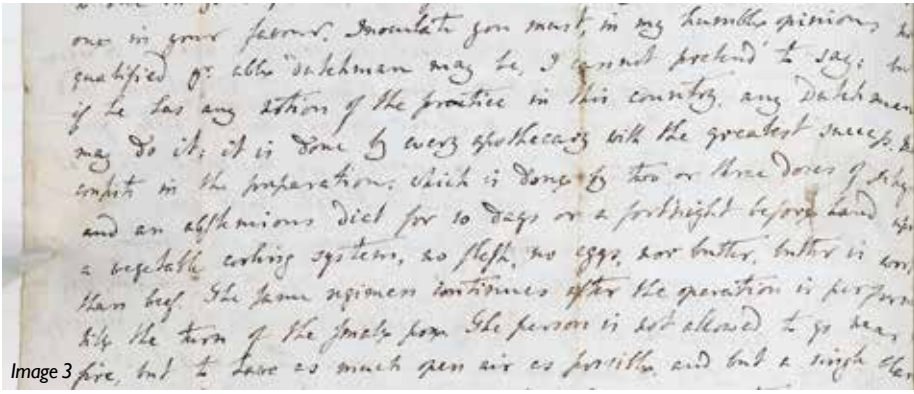 one in your favour. Inoculate you must, in my humble opinion,
qualified yr. able Dutchman may be, I cannot pretend to say; but
if he has any notion of the practice in this country, any Dutchman
may do it; it is done by every apothecary with the greatest success.
consists in the preparation, which is done by two or three doses of
and an abstemious Diet for 10 Days or a fortnight before hand
a vegetable cooling system, no flesh, no eggs, nor butter, butter is
than beef. The same regimen continues after the operation is perform
till the turn of the small pox. The person is not allowed to go near
fire, but to have as much open air as possible, and but a single
Image 3